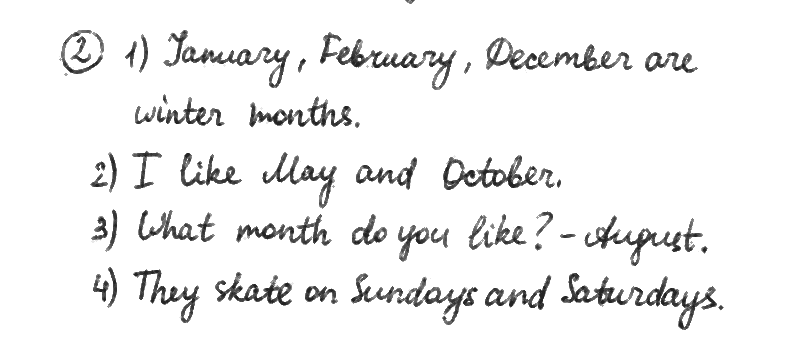 ② 1) January, February, December are
winter months.
2) I like May and October.
3) What month do you like? - August.
4) They skate on Sundays and Saturdays.